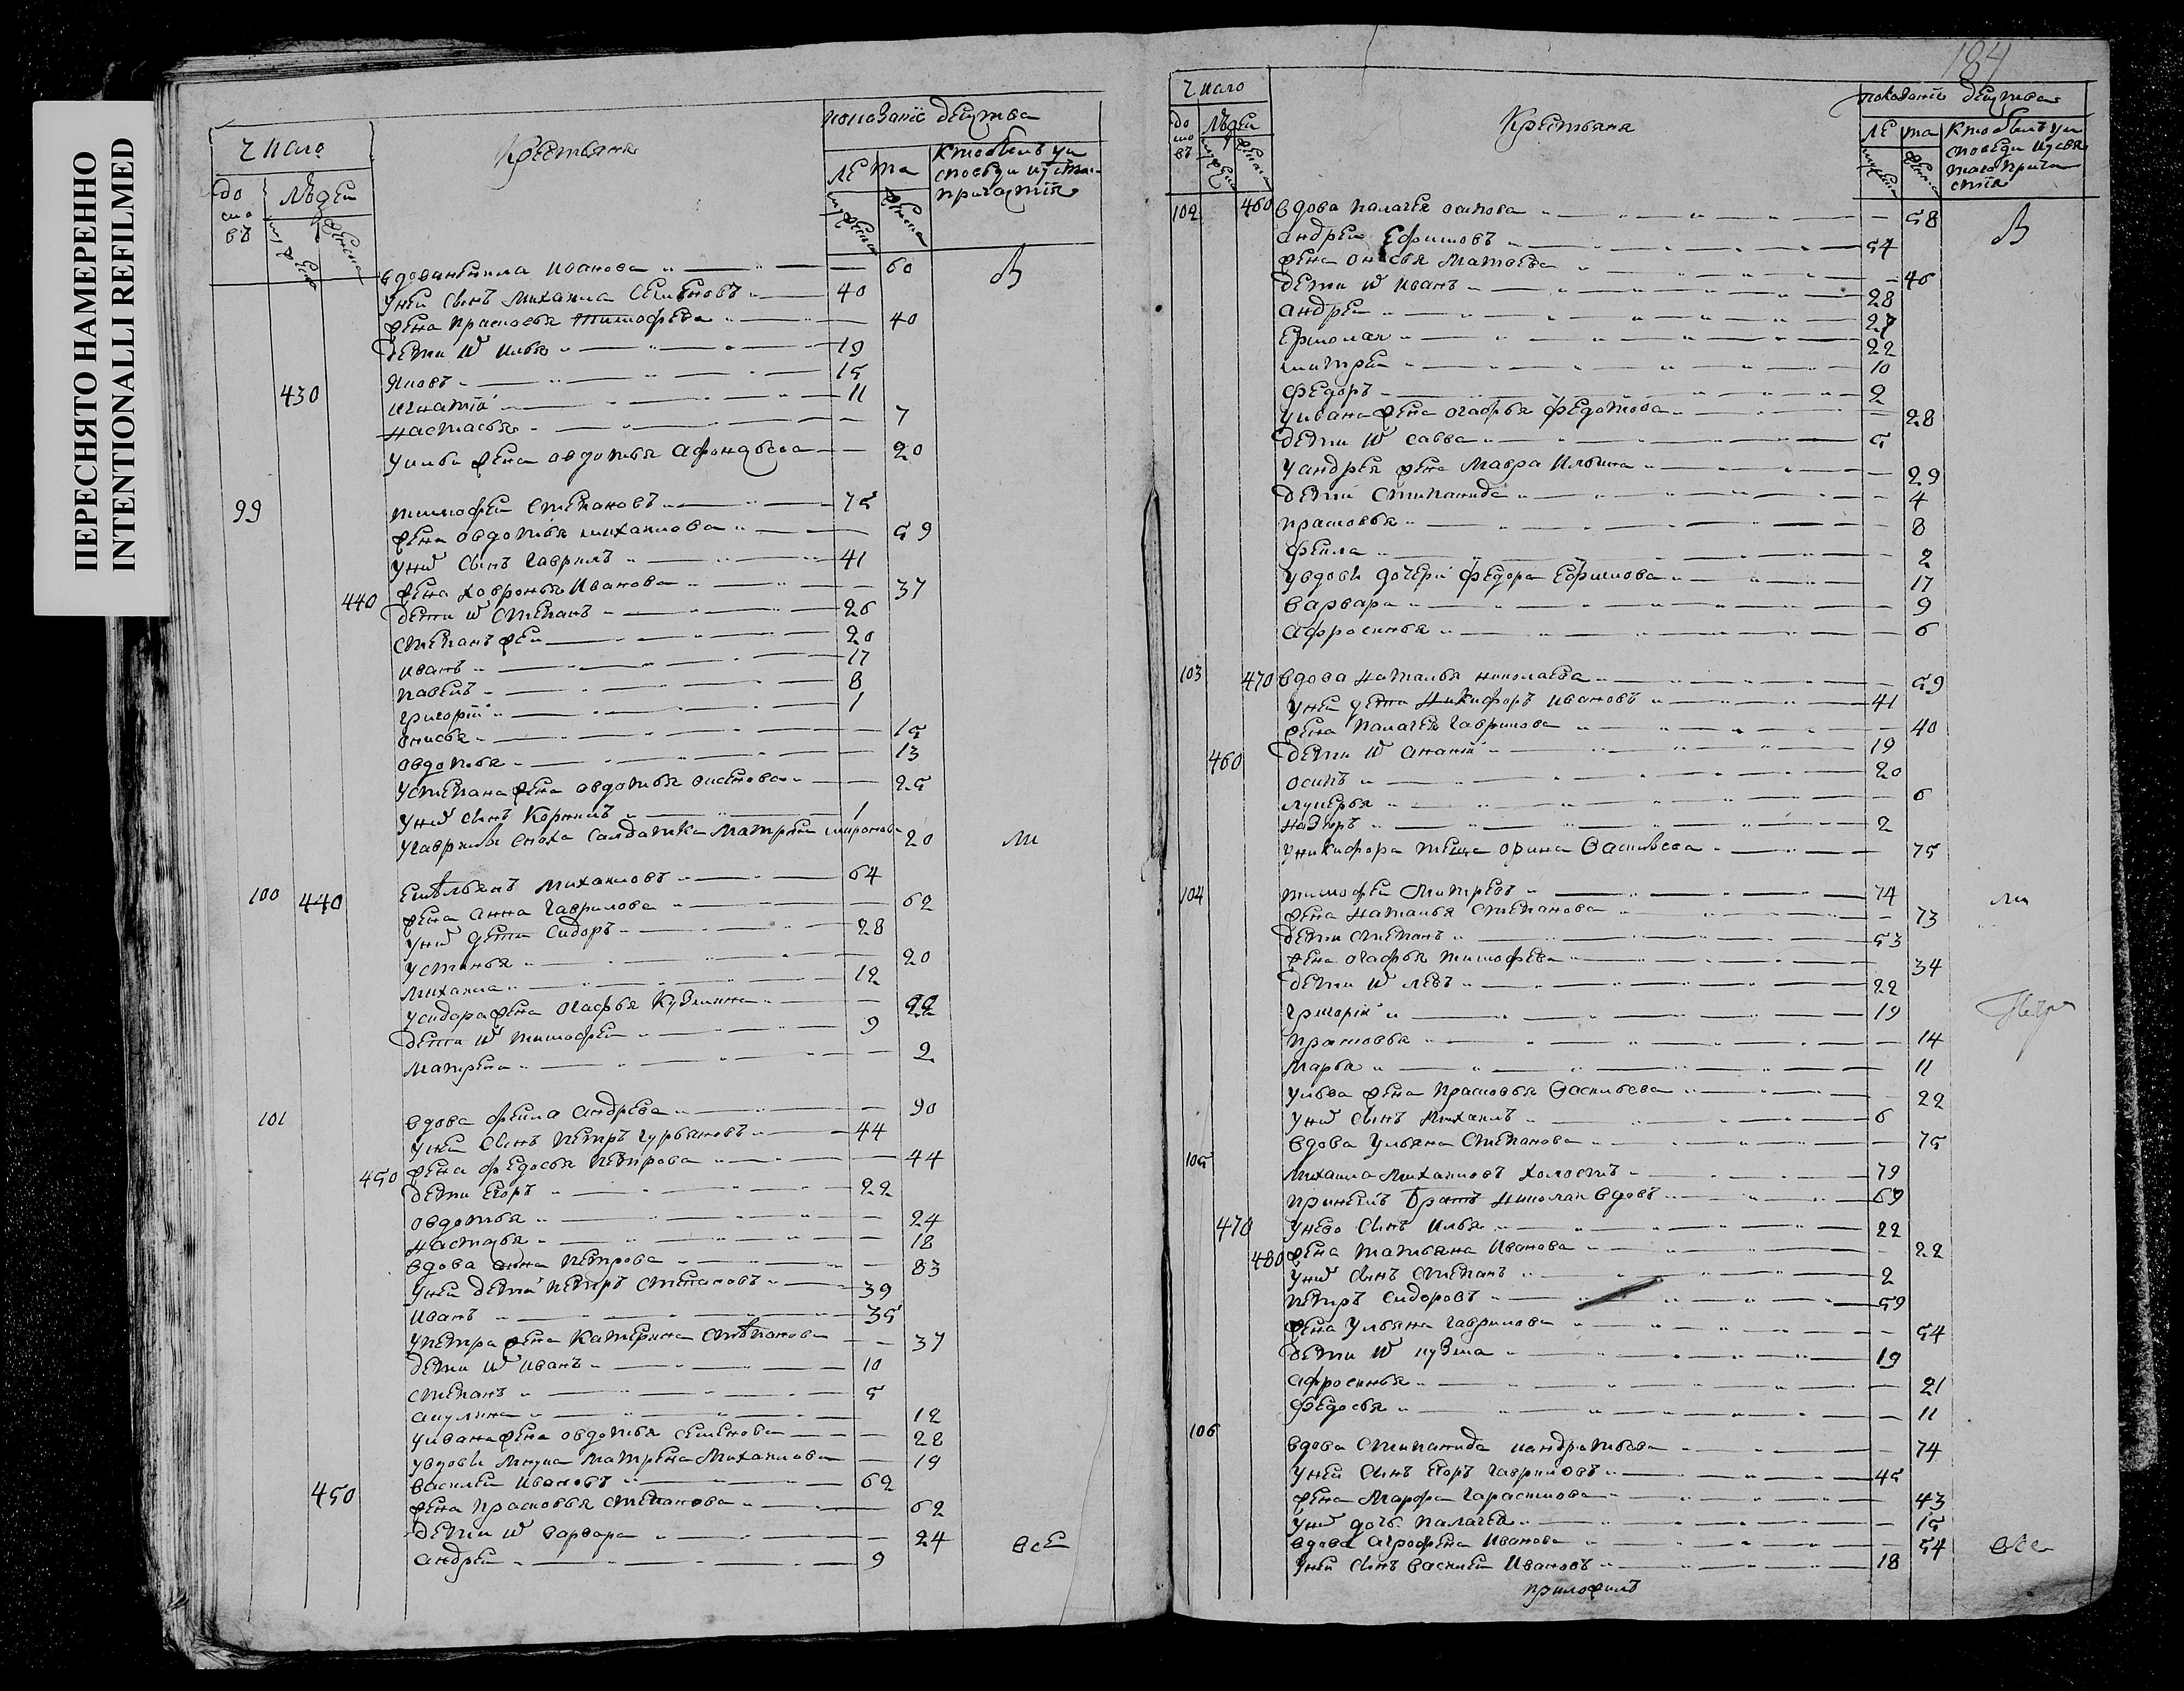 ПЕРЕСНЯТО НАМЕРЕННО
INTENTIONALLI REFILMED
число
Крестьяне
показанiе действа
до мо въ
людеи
лета
кто былъ у исповеди и у с. причастiя
мужеска
женска
вдова Иванова 60 В
у неи сынъ Михаила Семеновъ 40
жена Прасковья Тимофева 40
дети их Илья 19
Яковъ 15
430 Игнатiй 11
Настасья 7
у Ильи жена Овдотья Афонасьева 20
99 Тимофеи Степановъ 75
жена Овдотья Михаилова 59
у них сынъ Гаврилъ 41
440 жена Ховронья Иванова 37
дети их Степанъ 26
Степанъ же 20
Иванъ 17
Павелъ 8
Григорiй 1
Онисья 15
Овдотья 13
у Степана жена Овдотья 25
у них сынъ Корнилъ 1
у Гаврилы сноха салдатка Матрена Миронова 20
100 440 Емельянъ Михаиловъ 64
жена Анна Гаврилова 62
у них дети Сидоръ 28
Устинья 20
Михаила 12
у Сидора жена Огафья Кузмина 22
дети их Тимофеи 9
Матрена 2
101 вдова Фекла Андрева 90
у неи сынъ Петръ Гурьяновъ 44
450 жена Федосья Петрова 44
дети Егоръ 22
Овдотья 24
Настасья 18
вдова Анна Петрова 83
у неи дети Петръ Степановъ 39
Иванъ 35
у Петра жена Катерина Степанова 37
дети их Иванъ 10
Степанъ 5
Акулина 12
у Ивана жена Овдотья Семенова 28
у вдовы Матрена Михаилова 19
450 Василеи Ивановъ 62
жена Прасковья Степанова 62
дети их Варвара 24
Андреи 9
все
184
число
Крестьяне
показанiе действа
до мо въ
людеи
лета
кто былъ у исповеди и у святаго причастiя
102 460 вдова Палагея Осипова 58
В
Андреи Ефимовъ 54
жена Онисья Матвева 46
дети их Иванъ 28
Андреи 27
Ермолаи 22
Митреи 10
Федоръ 2
у Ивана жена Огафья Федотова 28
дети их Савва 5
у Андрея жена Мавра Ильина 29
дети Стипанида 4
Прасковья 8
Фекла 2
у вдовы дочери Федора Ефимова 17
Варвара 9
Афросинья 6
103 470 вдова Наталья Николаева 59
у неи дети Никифоръ Ивановъ 41
жена Палагея Гаврилова 40
460 дети их Ананiй 19
Осипъ 20
Лукерья 6
Назаръ 2
у Никифора теща Орина Васильева 75
104 Тимофеи Митревъ 74
жена Наталья Степанова 73
дети Степанъ 53
жена Огафья Тимофева 34
дети их Левъ 22
Григорiй 19
Прасковья 14
Марья 11
у Льва жена Прасковья Васильева 22
у них сынъ Михаилъ 6
вдова Ульяна Степанова 75
105 Михаила Михаиловъ холостъ 79
братъ Николаи вдовъ 69
470 у нево сынъ Илья 22
480 жена Татьяна Иванова 22
у них сынъ Степанъ 2
Петръ Сидоровъ 59
жена Ульяна Гаврилова 54
дети их Кузма 19
Афросинья 21
Федосья 11
106 вдова Стипанида Кандратьева 74
у неи сынъ Егоръ Гавриловъ 45
жена Марфа Гарасимова 43
у них дочь Палагея 15
вдова Агрофена Иванова 54
у неи сынъ Василеи Ивановъ 18
все